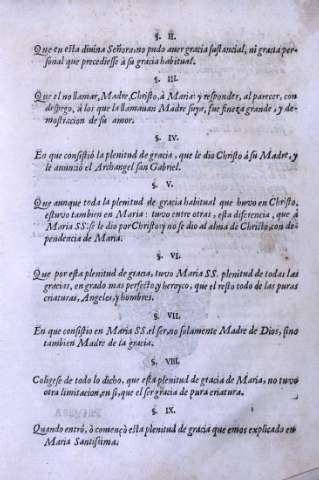 §. II.
Que en esta divina Señora, no pudo auer gracia sustancial, ni gracia per-
sonal que precediesse à su gracia habitual.
§. III.
Que el no llamar, Madre, Christo, à Maria: y responder, al parecer, con
despego, à los que la llamauan Madre suya, fue fineza grande, y de-
mostracion de su amor.
§. IV.
En que consistiò la plenitud de gracia, que le dio Christo à su Madre, y
le anunciò el Archangel san Gabriel.
§. V.
Que aunque toda la plenitud de gracia habitual que huvo en Christo,
estuvo tambien en Maria: tuvo entre otras, esta diferencia, que à
Maria SS. se le dio por Christo; y no se dio al alma de Christo, con de-
pendencia de Maria.
§. VI.
Que por esta plenitud de gracia, tuvo Maria SS. plenitud de todas las
gracias, en grado mas perfecto, y heroyco, que el resto todo de las puras
criaturas, Angeles, y hombres.
§. VII.
En que consistio en Maria SS. el ser, no solamente Madre de Dios, sino
tambien Madre de la gracia.
§. VIII.
Coligese de todo lo dicho, que esta plenitud de gracia de Maria, no tuvo
otra limitacion, en si, que el ser gracia de pura criatura.
§. IX.
Quando entrò, ò començò esta plenitud de gracia que emos explicado en
Maria Santissima.